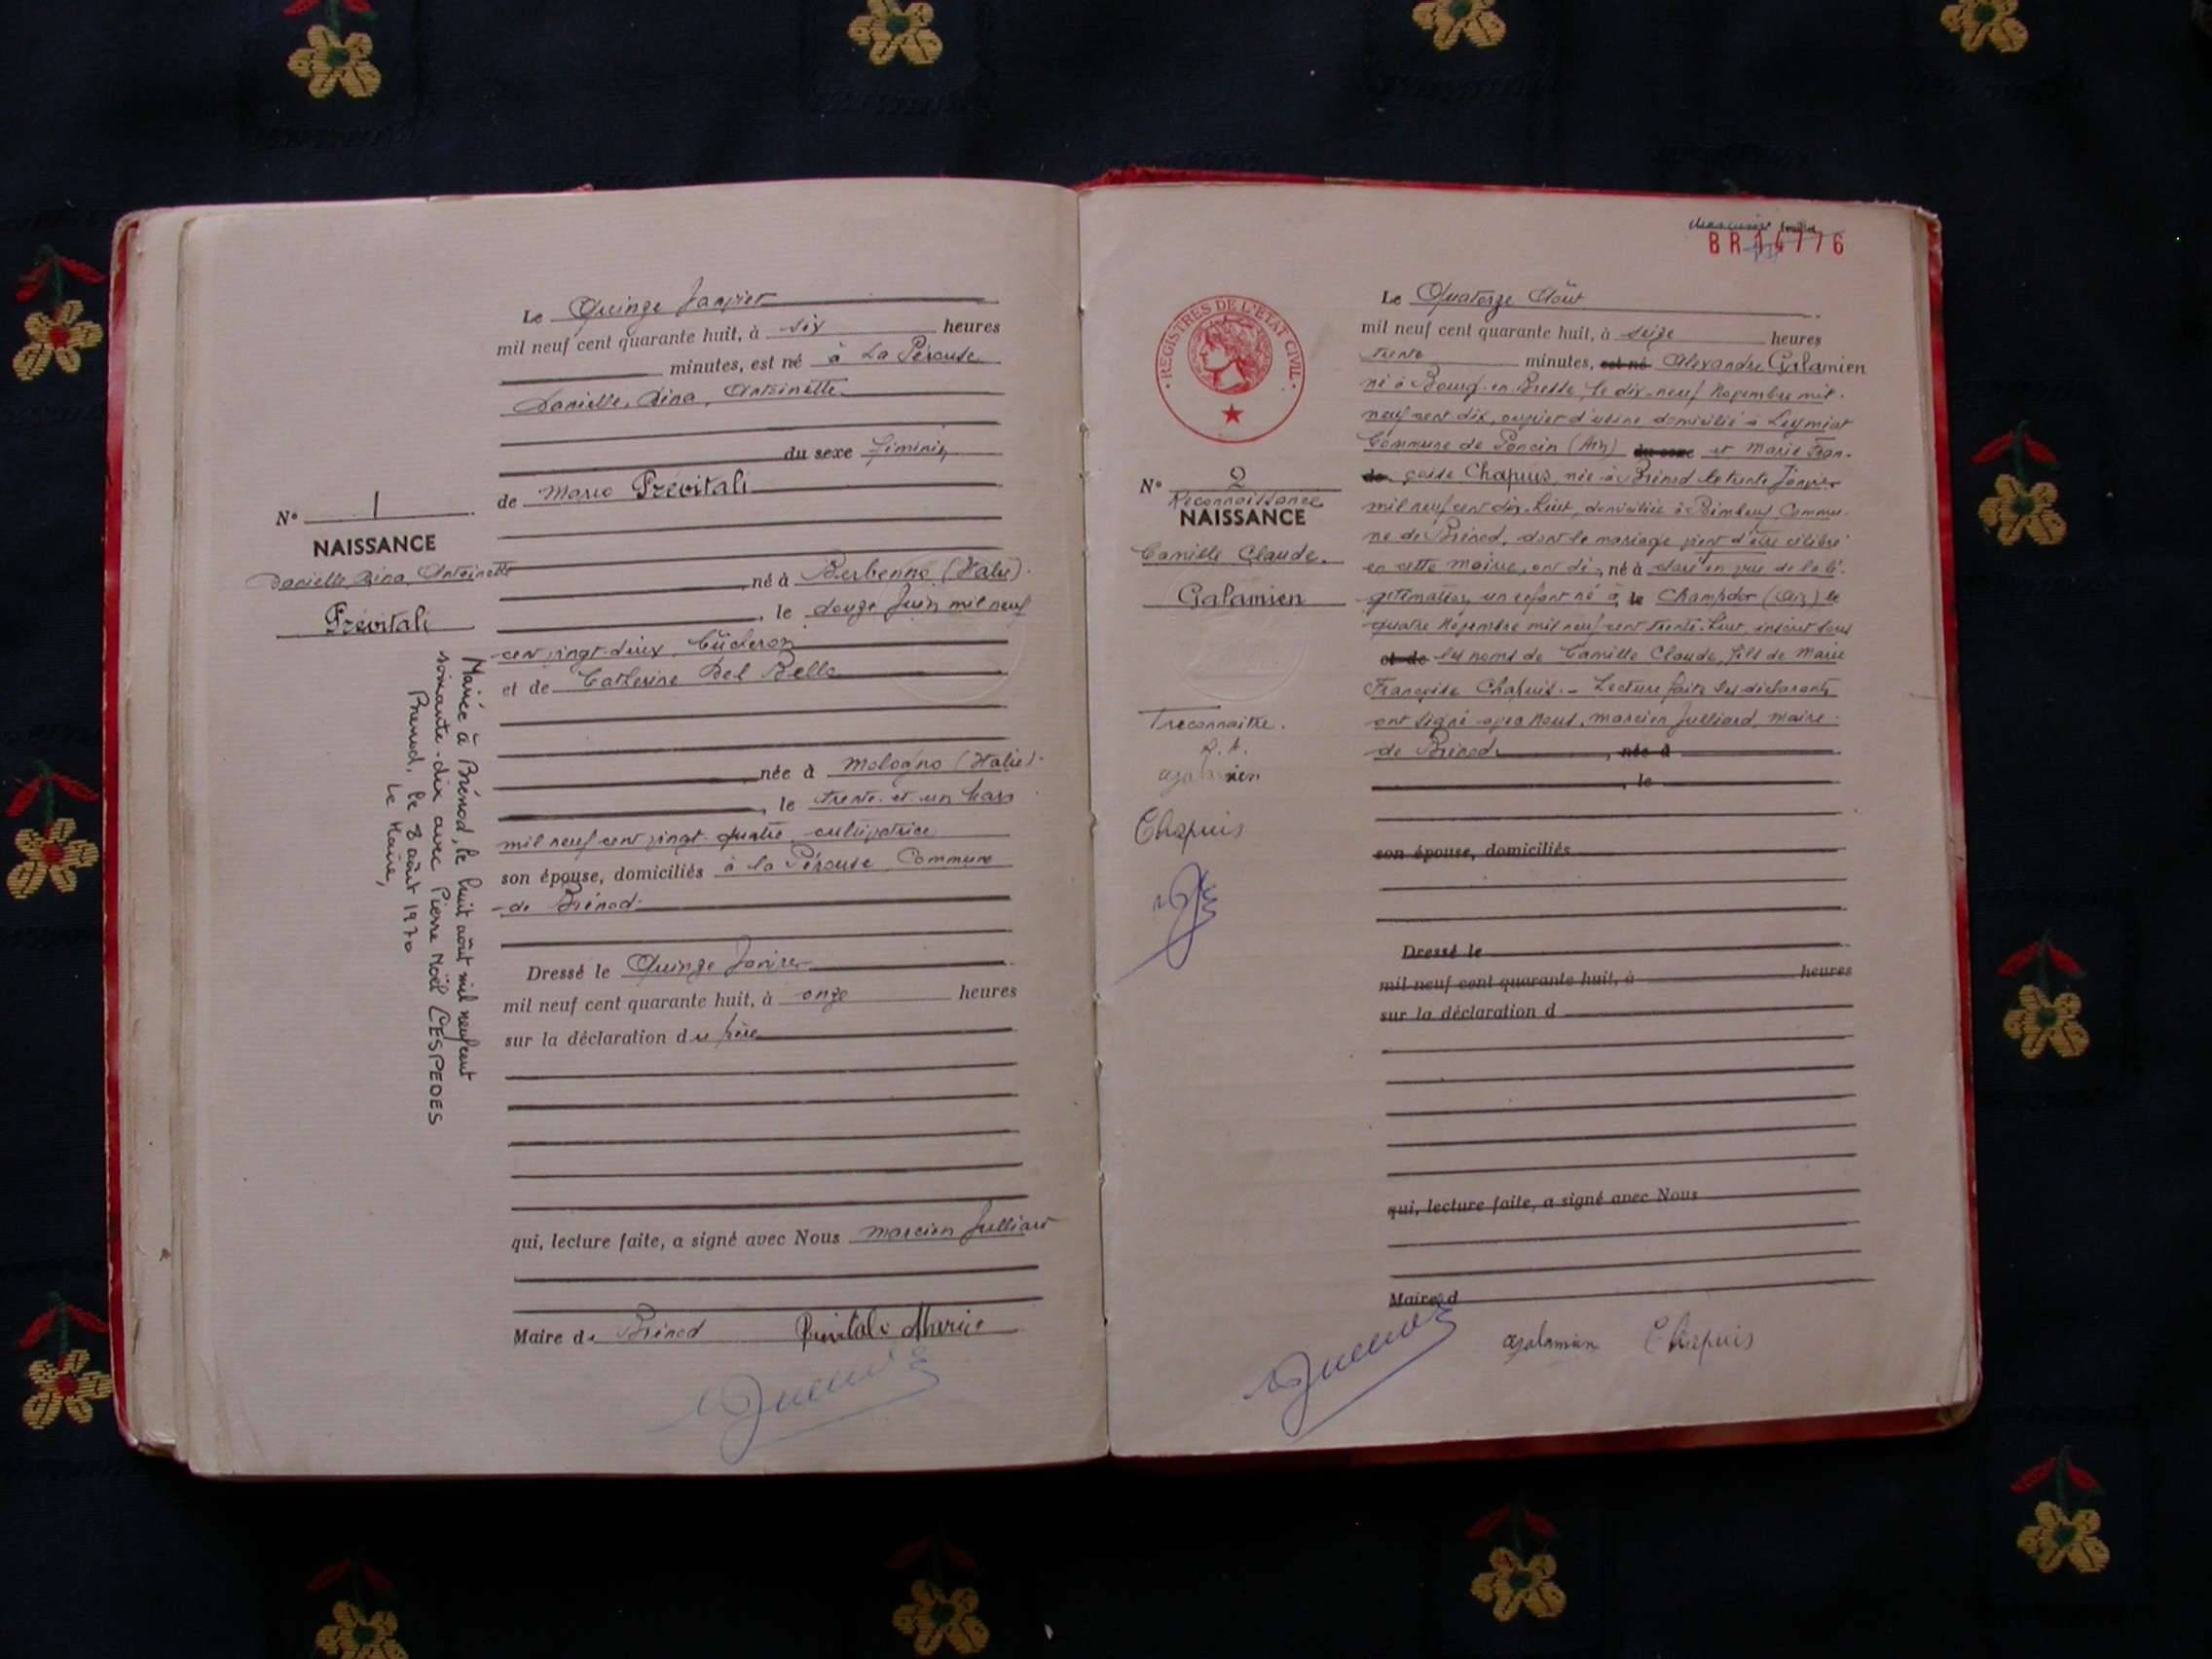 Le Quinze Janvier
mil neuf cent quarante huit, à six heures
minutes, est né à La Pérouse
Danielle, Dina, Antoinette
du sexe féminin
de Mario Prévitali
N° 1
NAISSANCE
Danielle Dina, Antoinette
Prévitali
né à Berbenno (Italie).
, le douze Juin mil neuf
cent vingt-deux, bûcheron
et de Catherine Del Bello
née à Mologno (Italie).
, le trente et un Mars
mil neuf cent vingt-quatre, cultivatrice
son épouse, domiciliés à la Pérouse Commune
de Brénod.
Mariée à Brénod, le huit août mil neuf cent
soixante-dix avec Pierre Noël CESPEDES
Brenod, le 8 août 1970
Le Maire,
Dressé le Quinze Janvier
mil neuf cent quarante huit, à onze heures
sur la déclaration du père
qui, lecture faite, a signé avec Nous Marcien Julliard
Maire de Brénod Previtali Mario
feuillet
BR 14776
REGISTRES DE L'ÉTAT CIVIL
Le Quatorze Août
mil neuf cent quarante huit, à seize heures
trente minutes, est né Alexandre Galamien
né à Bourg-en-Bresse, le dix-neuf Novembre mil-
neuf cent dix, ouvrier d'usine domicilié à Leymiat
Commune de Poncin (Ain) du sexe et Marie Fran-
de çoise Chapuis, née à Brénod le trente Janvier
mil neuf cent dix-huit, domiciliée à Commu-
ne de Brénod, dont le mariage vient d'être célébré
en cette mairie, ont dé-, né à claré en vue de la lé-
gitimation, un enfant né à, le Champdor (Ain) le
quatre Novembre mil neuf cent trente-huit, inscrit sous
et de les noms de Camille Claude, fils de Marie
Françoise Chapuis. - Lecture faite les déclarants
ont signé avec Nous, Marcien Julliard, Maire
de Brénod. , née à
, le
N° 2
Reconnaissance
NAISSANCE
Camille Claude.
Galamien
reconnaitre.
R. A.
Galamien
Chapuis
son épouse, domiciliés
Dressé le
mil neuf cent quarante huit, à heures
sur la déclaration d
qui, lecture faite, a signé avec Nous
Maire d
Galamien Chapuis